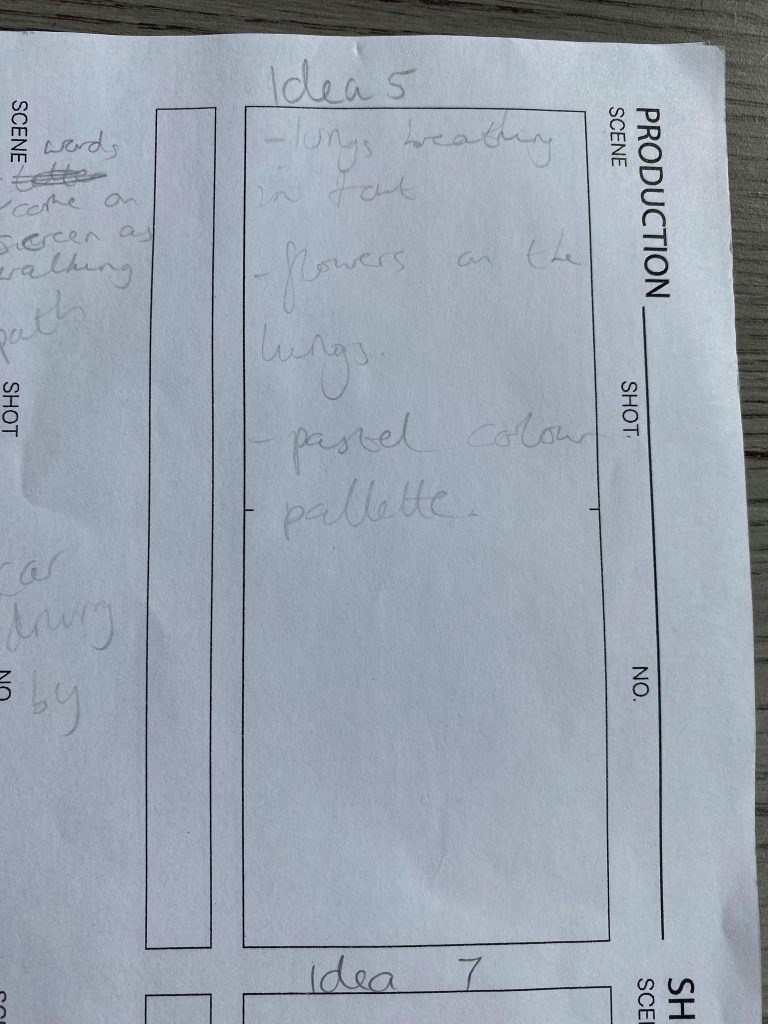 Idea 5
- lungs breathing
in
- flowers on the
lungs.
- pastel colour
pallette.
Idea 7
words
come on
screen as
walking
path
car
driving
by
PRODUCTION
SCENE
SHOT
NO.
SCENE
SHOT
NO.
SH